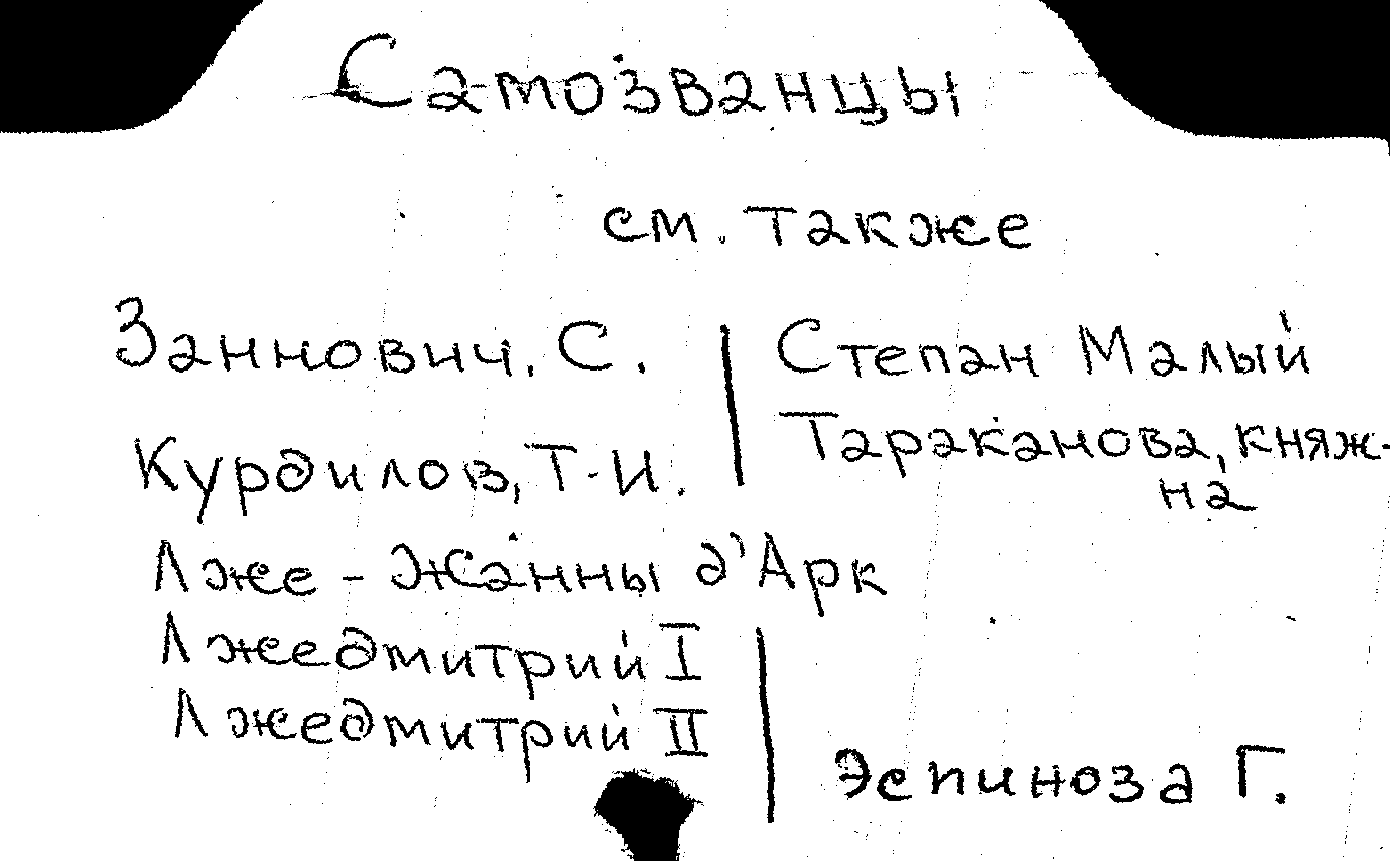 Самозванцы
см. также
Заннович, С.
Курдилов, Т.И.
Лже-Жанны д'Арк
Лжедмитрий I
Лжедмитрий II
Степан Малый
Тараканова, княж-
на
Эспиноза Г.